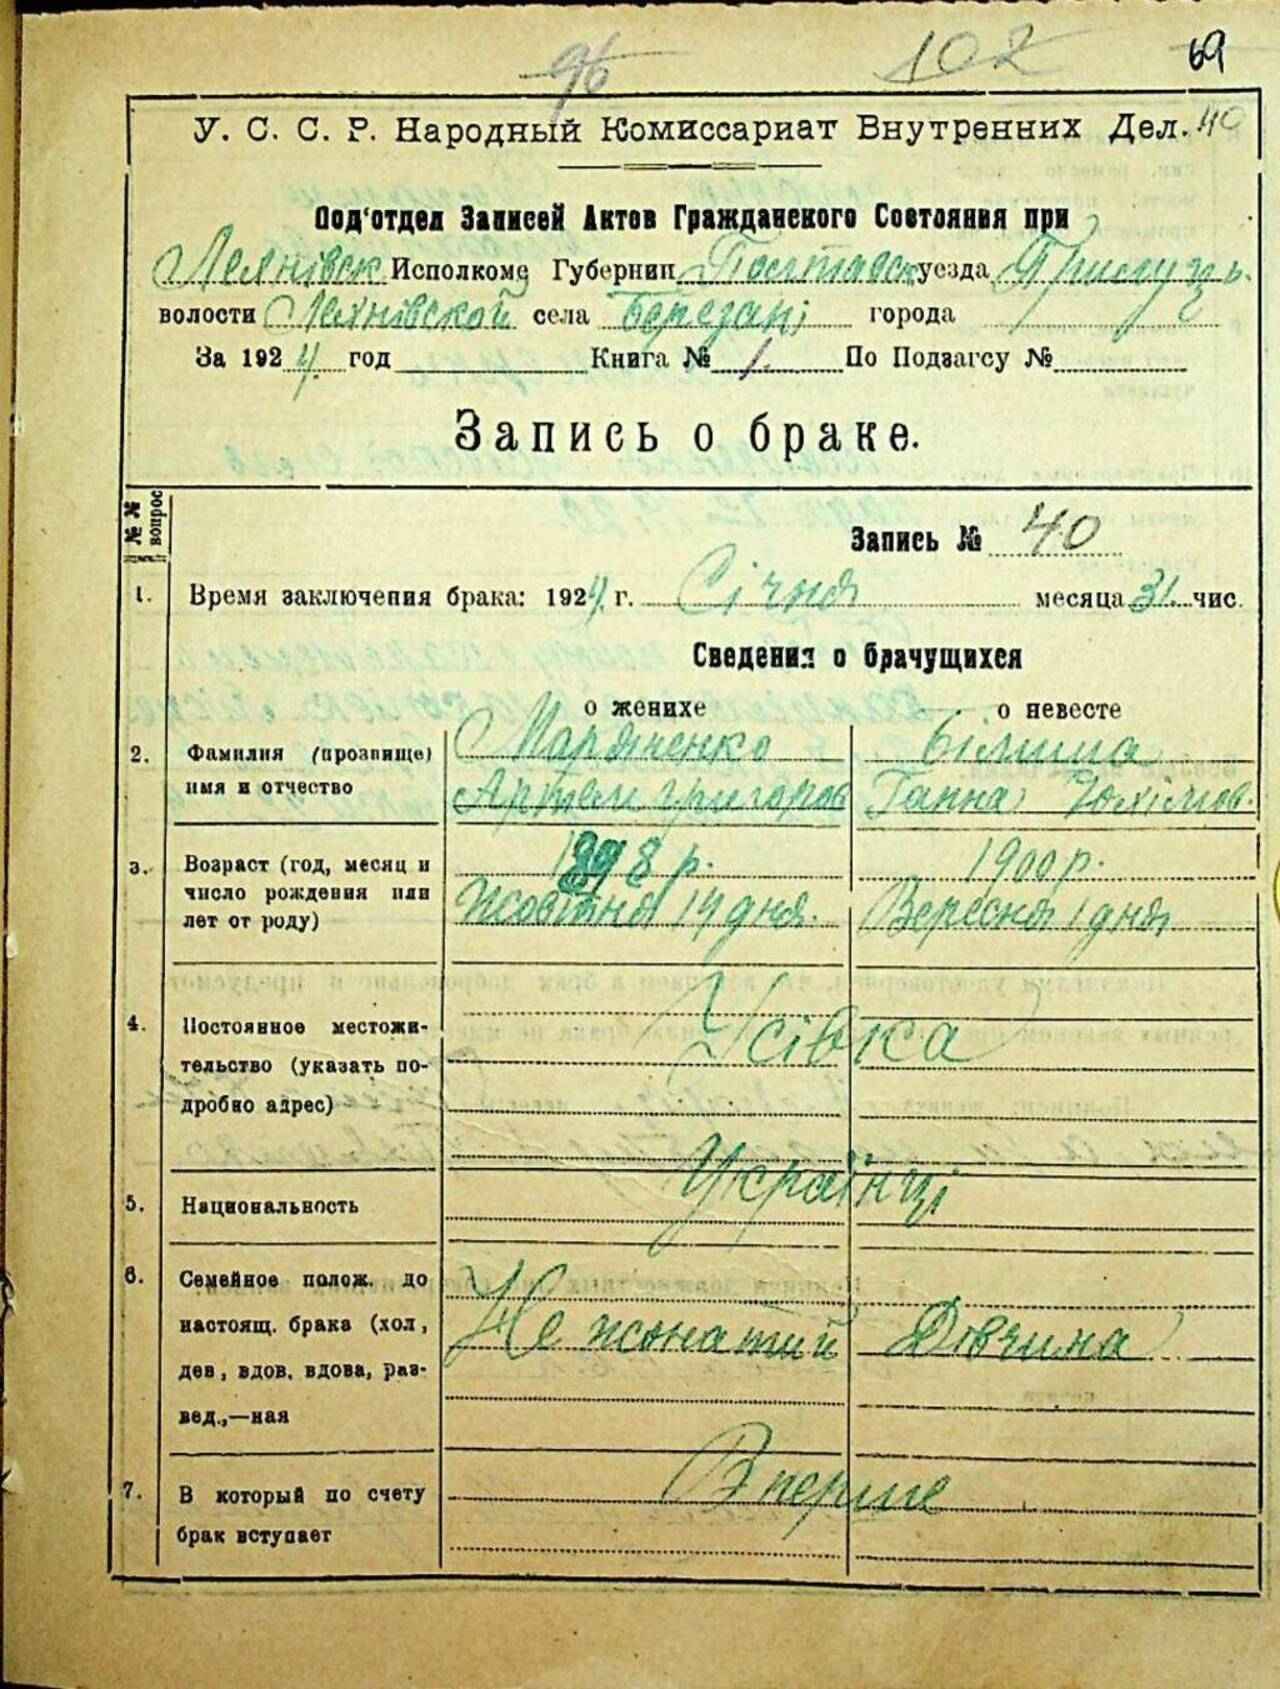 96 102 69
У. С. С. Р. Народный Комиссариат Внутренних Дел. 40
Под'отдел Записей Актов Гражданского Состояния при
Исполкоме Губернии Полтавск уезда
волости села Березані города
За 1924 год Книга № 1. По Подзагсу №
Запись о браке.
№ № вопрос
Запись № 40
1. Время заключения брака: 1924 г. Січня месяца 31 чис.
Сведения о брачущихся
о женихе о невесте
2. Фамилия (прозвище) имя и отчество
Артем Григоров
Ганна Юхимов.
3. Возраст (год, месяц и число рождения или лет от роду)
1898 р.
Жовтня 14 дня.
1900 р.
Вересня 1 дня
4. Постоянное местожительство (указать подробно адрес)
Усівка
5. Национальность
Українці
6. Семейное полож. до настоящ. брака (хол, дев, вдов, вдова, развед.,—ная
Не жонатий Дівчина
7. В который по счету брак вступает
Вперше